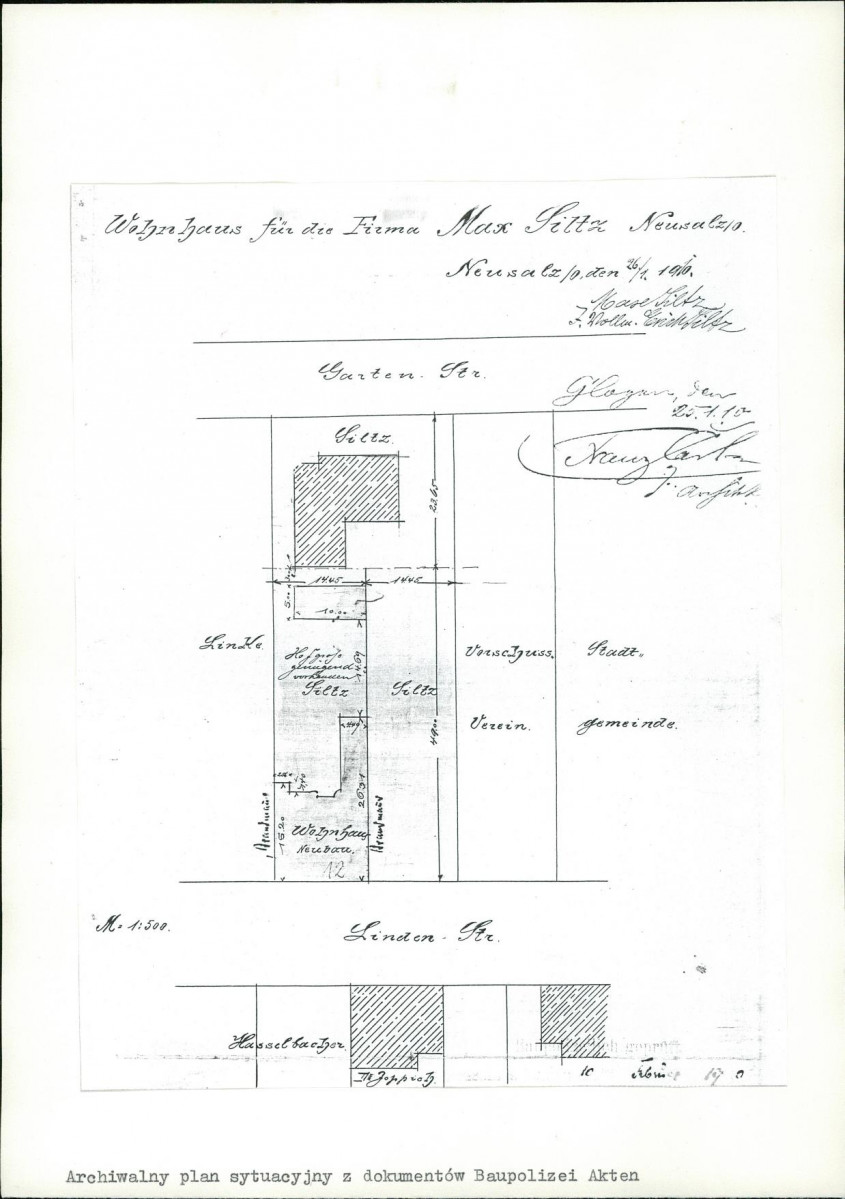 Wohnhaus für die Firma Max Siltz Neusalz/o.
Neusalz/o, den 26/1. 1910.
Max Siltz
Erich Siltz
Garten-Str.
Glogau, den
25.1.10
Siltz.
23.65
14.45 14.45
5.00
10.00
Linke.
Hofgröße
genügend
vorhanden
14.69
Siltz Siltz
Vorschuss-
Verein.
Stadt-
gemeinde.
4.49
49.00
20.31
Brandmauer
15.20
Brandmauer
Wohnhaus
Neubau.
12
M = 1:500.
Linden-Str.
Hasselbacher.
Joppich.
10
Archiwalny plan sytuacyjny z dokumentów Baupolizei Akten